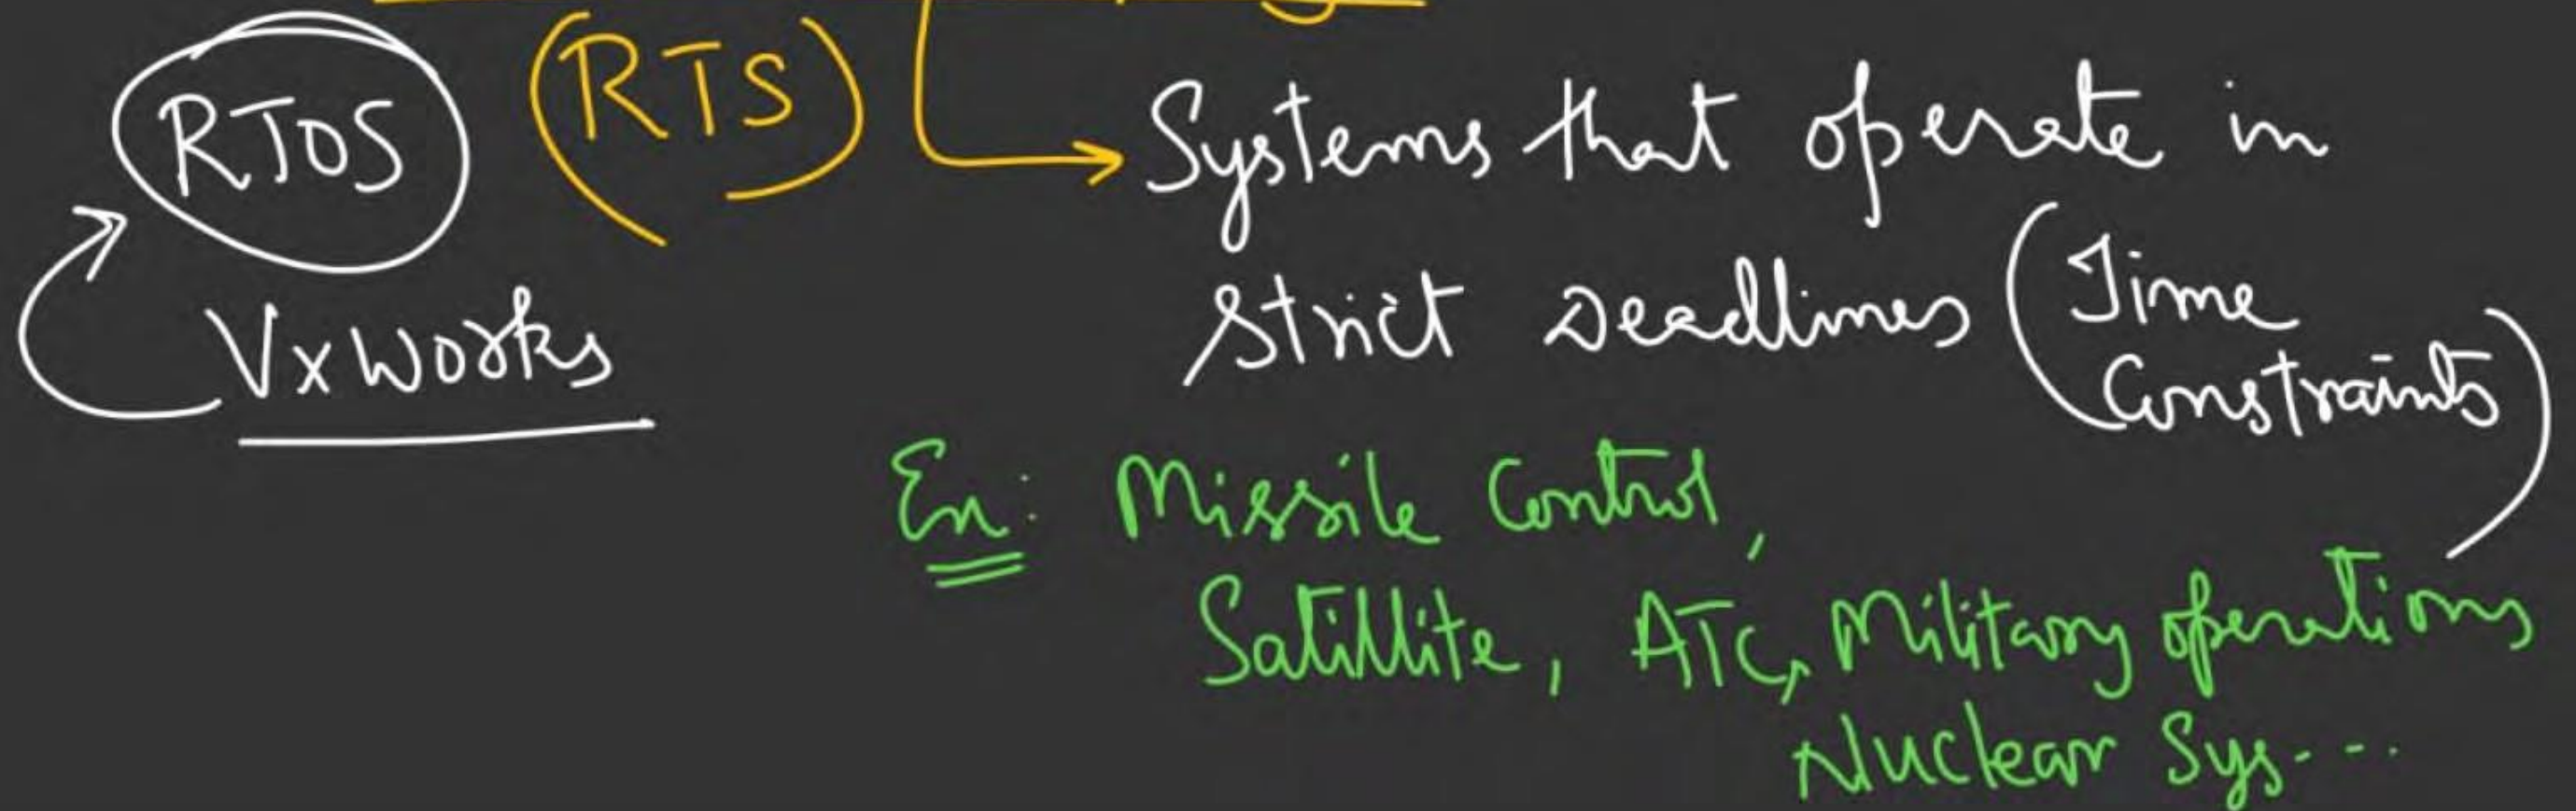 RTOS (RTS) Systems that operate in
Strict Deadlines (Time
Constraints)
VxWorks
En: Missile Control,
Satillite, ATC, Military operations
Nuclear Sys....